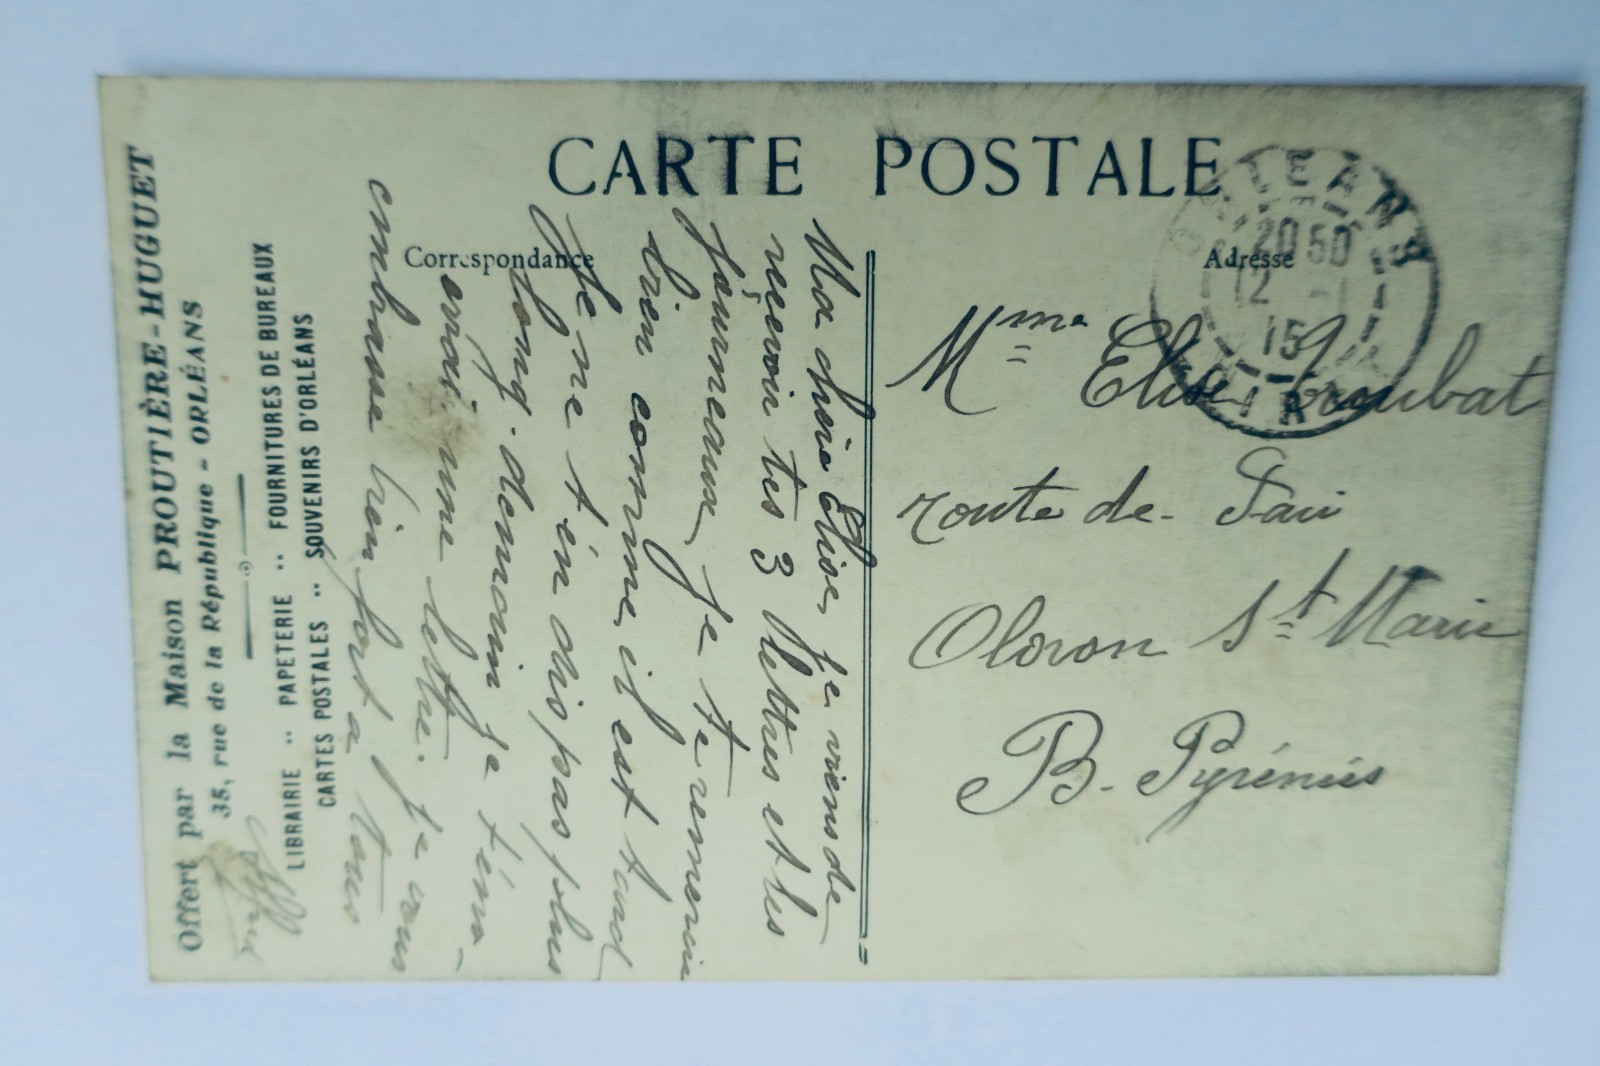 CARTE POSTALE
Correspondance
Adresse
ORLEANS
20 50
12 - 1
15
LOIRET
Ma chère Elise, je viens de
recevoir tes 3 lettres et les
journeaux, je te remercie
bien comme il est tard
je ne t'en dis pas plus
long. demain je t'énv-
errai une lettre. je vous
embrasse bien fort a tous
Mme Elise
route de Pau
Oloron St Marie
B. Pyrénées
Offert par la Maison PROUTIÈRE-HUGUET
35, rue de la République - ORLÉANS
LIBRAIRIE :: PAPETERIE :: FOURNITURES DE BUREAUX
CARTES POSTALES :: SOUVENIRS D'ORLÉANS